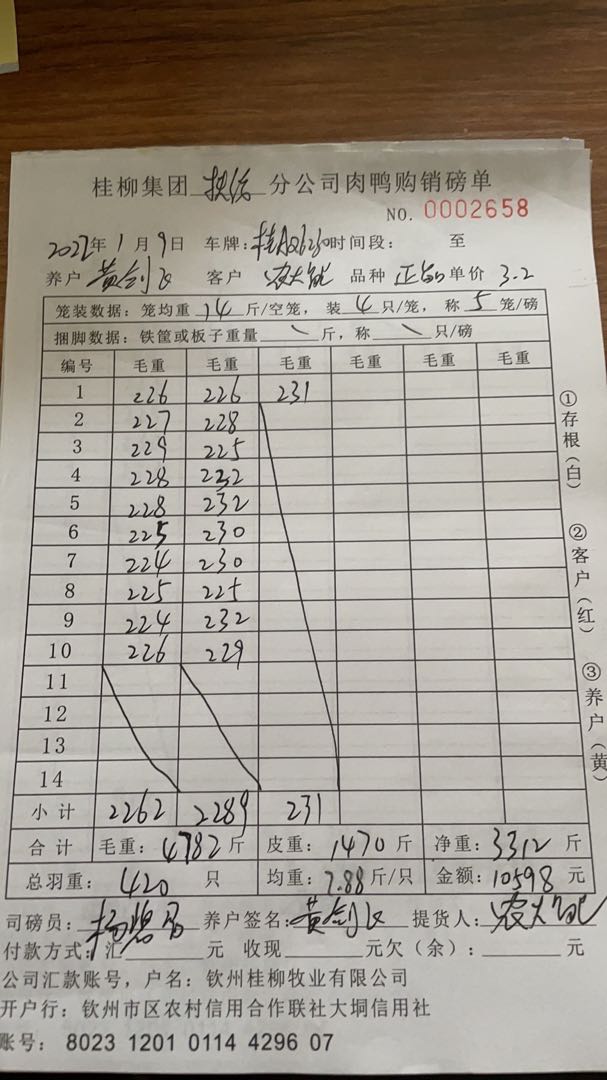 桂柳集团 分公司肉鸭购销磅单
NO. 0002658
2022年1月9日 车牌：桂AQ6230 时间段： 至
养户 黄剑飞 客户 农大能 品种 正品 单价 3.2
笼装数据：笼均重 14 斤/空笼，装 4 只/笼，称 5 笼/磅
捆脚数据：铁筐或板子重量 \ 斤，称 \ 只/磅
编号 毛重 毛重 毛重 毛重 毛重 毛重
1 226 226 231
2 227 228
3 229 225
4 228 232
5 228 232
6 225 230
7 224 230
8 225 225
9 224 232
10 226 229
11
12
13
14
小计 2262 2289 231
合计 毛重：4782 斤 皮重：1470 斤 净重：3312 斤
总羽重：420 只 均重：7.88 斤/只 金额：10598 元
司磅员： 养户签名：黄剑飞 提货人：农大能
付款方式：汇 元 收现 元欠（余）： 元
公司汇款账号，户名：钦州桂柳牧业有限公司
开户行：钦州市区农村信用合作联社大垌信用社
账号：8023 1201 0114 4296 07
①存根（白）
②客户（红）
③养户（黄）